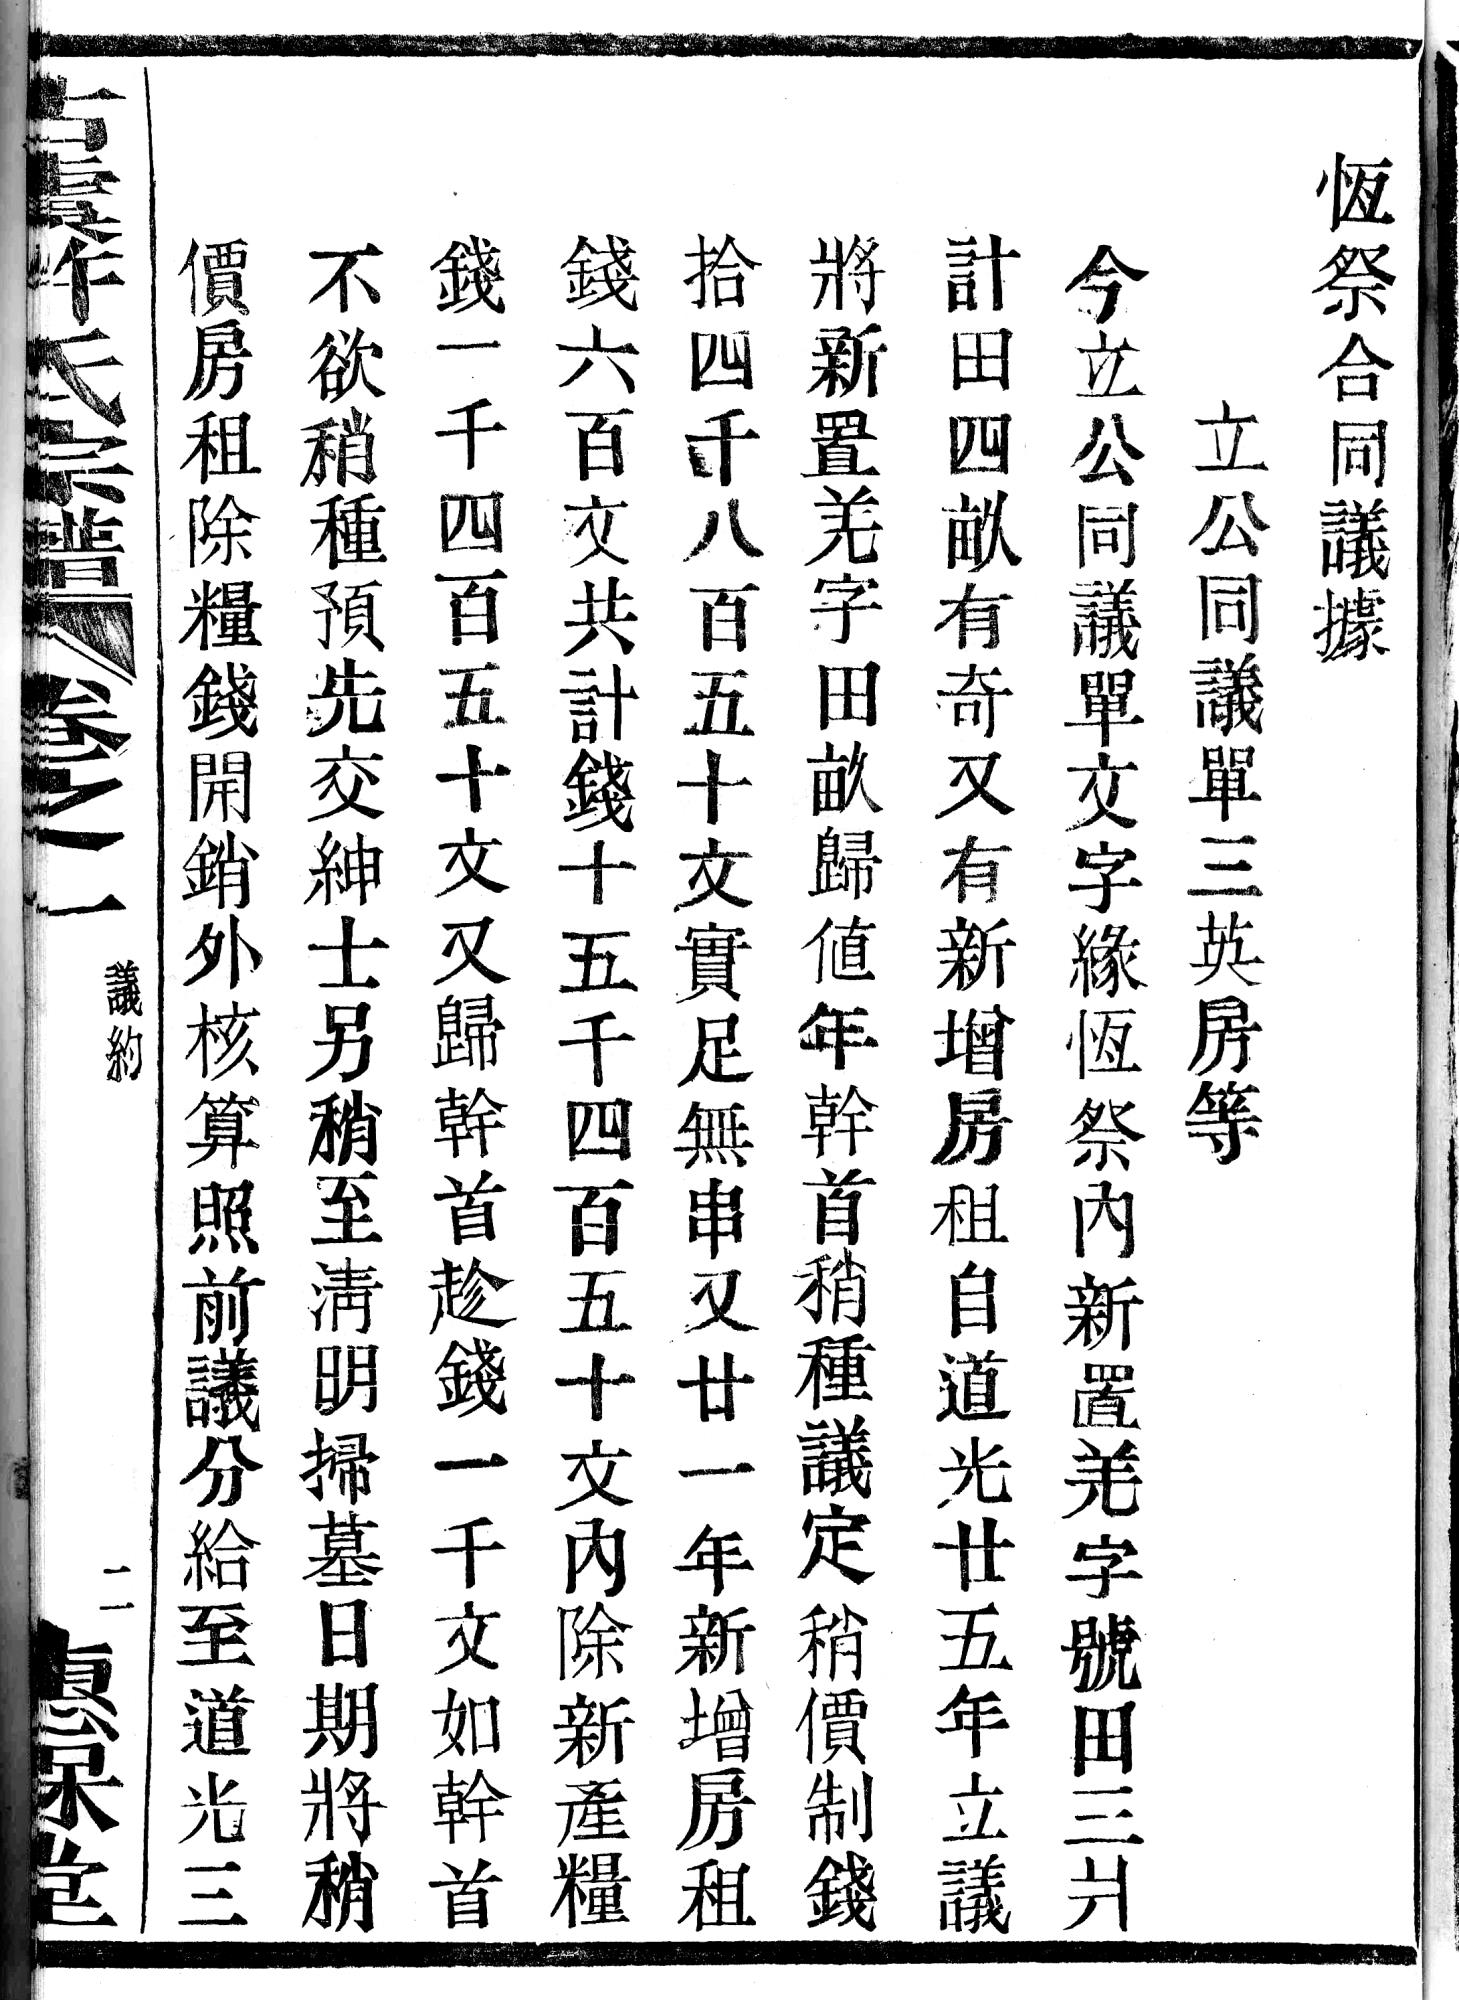 恆祭合同議據
立公同議單三英房等
今立公同議單文字緣恆祭內新置羌字號田三爿
計田四畝有奇又有新增房租自道光廿五年立議
將新置羌字田畝歸値年幹首稍種議定稍價制錢
拾四千八百五十文實足無串又廿一年新增房租
錢六百文共計錢十五千四百五十文內除新產糧
錢一千四百五十文又歸幹首趁錢一千文如幹首
不欲稍種預先交紳士另稍至淸明掃墓日期將稍
價房租除糧錢開銷外核算照前議分給至道光三
許氏宗譜 卷之一
議約
二
惠保堂